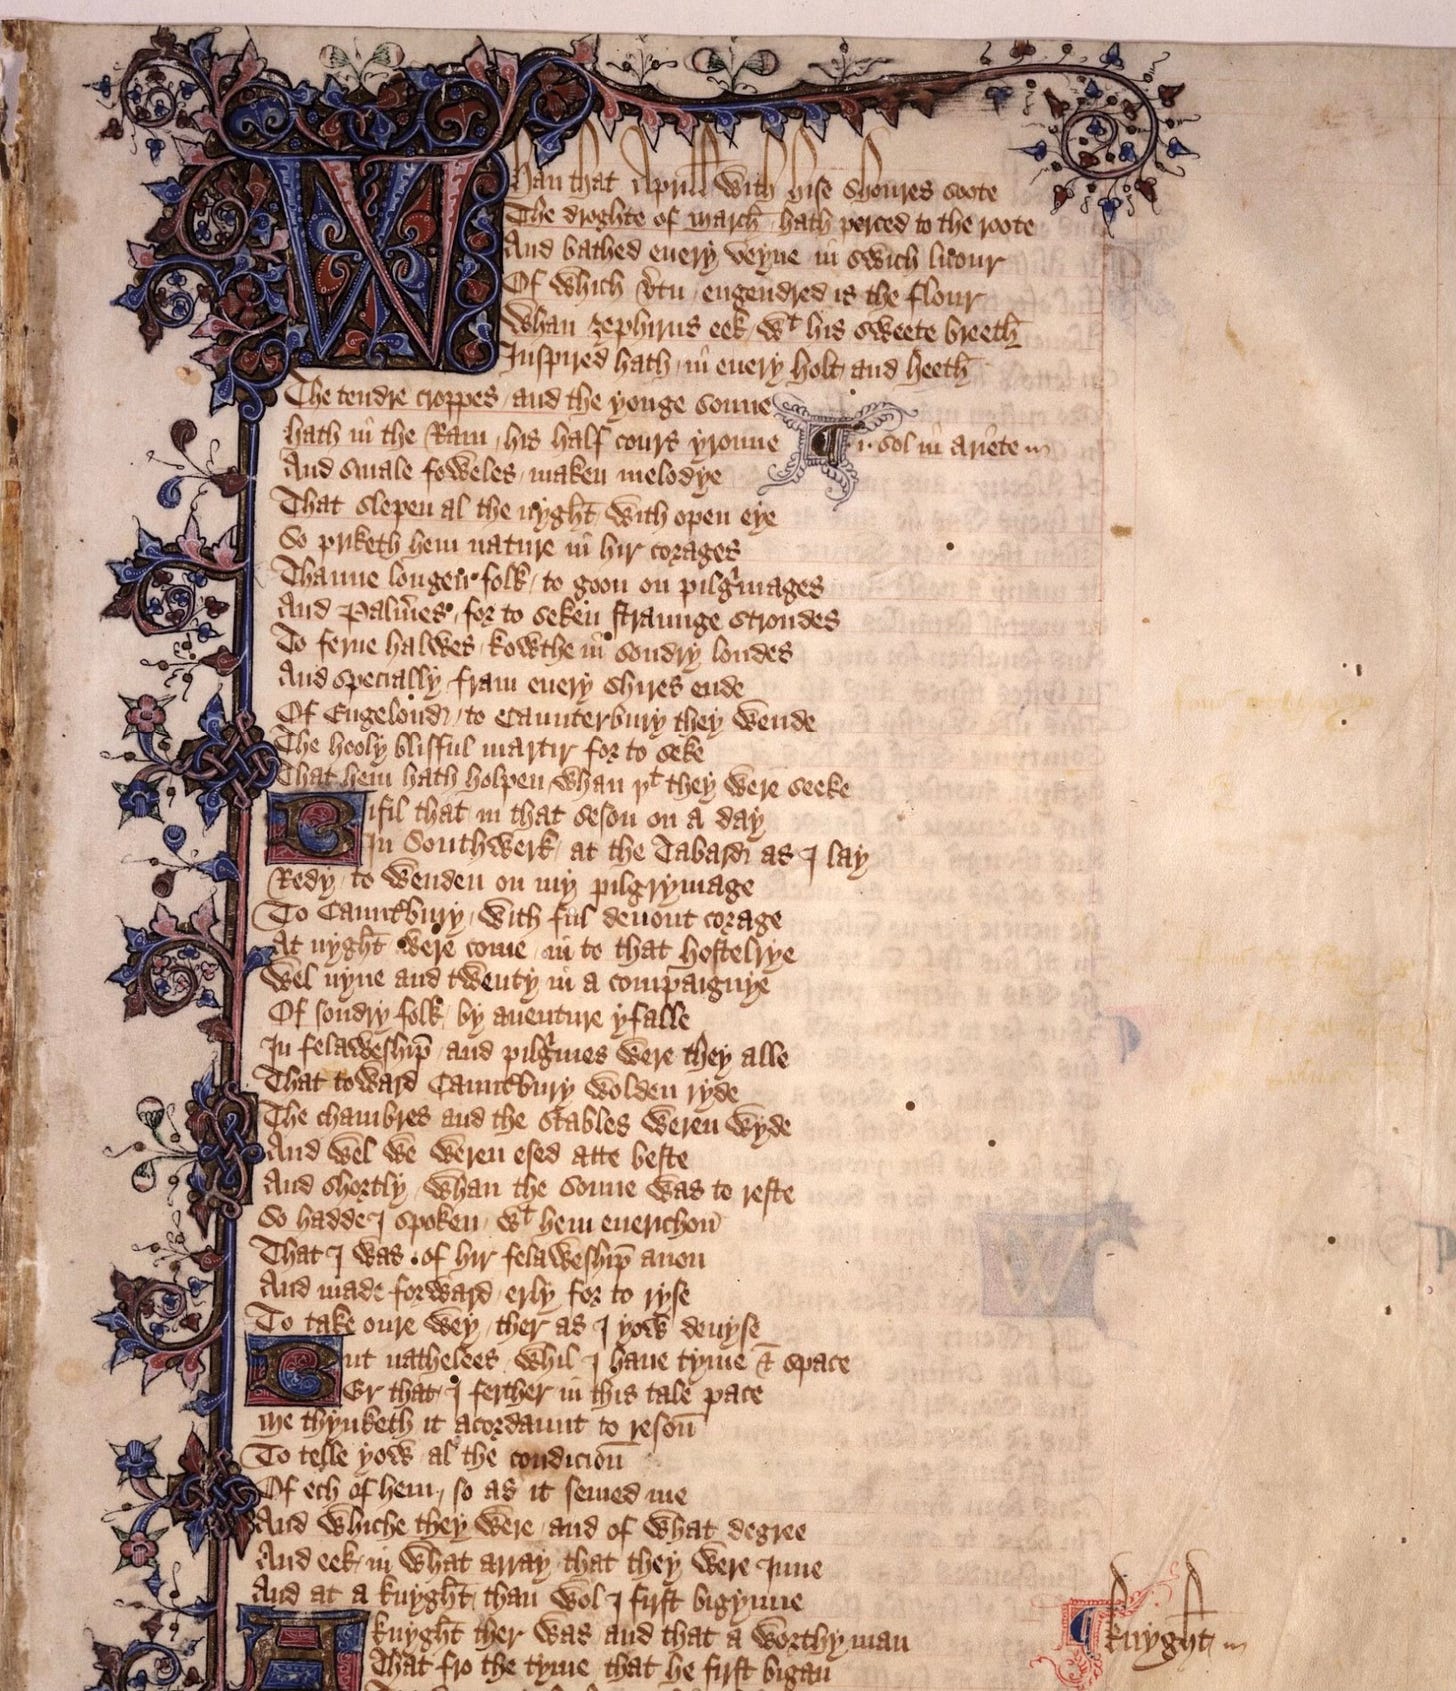 Whan that Aprill with hise shoures soote
The droghte of march hath perced to the roote
And bathed euery veyne in swich licour
Of which v̉tu engendred is the flour
Whan zephirus eek wt his sweete breeth
Inspired hath in euery holt and heeth
The tendre croppes and the yonge sonne
hath in the Ram his half cours yronne
¶ .i. sol in ariete
And smale foweles maken melodye
That slepen al the nyght with open eye
So priketh hem nature in hir corages
Thanne longen folk to goon on pilg̉mages
And Palm̉es for to seken straunge strondes
To ferne halwes kowthe in sondry londes
And specially fram euery shires ende
Of Engelond to Caunterbury they wende
The hooly blisful martir for to seke
That hem hath holpen whan þt they were seeke
Bifil that in that seson on a day
In Southwerk at the Tabard as I lay
Redy to wenden on my pilgrymage
To Caunt̉bury with ful deuout corage
At nyght were come in to that hostelrye
Wel nyne and twenty in a compaignye
Of sondry folk by auenture yfalle
In felaweshipe and pilg̉mes were they alle
That toward Caunt̉bury wolden ryde
The chambres and the stables weren wyde
And wel we weren esed atte beste
And shortly whan the sonne was to reste
So hadde I spoken wt hem euerichon
That I was of hir felaweshipe anon
And made forward erly for to ryse
To take oure wey ther as I yow deuyse
But nathelees whil I haue tyme & space
Er that I ferther in this tale pace
Me thynketh it acordaunt to reson
To telle yow al the condicion
Of ech of hem so as it semed me
And whiche they were and of what degree
And eek in what array that they were Inne
And at a knyght than wol I first bigynne
A knyght ther was and that a worthy man
¶ knyght
That fro the tyme that he first bigan